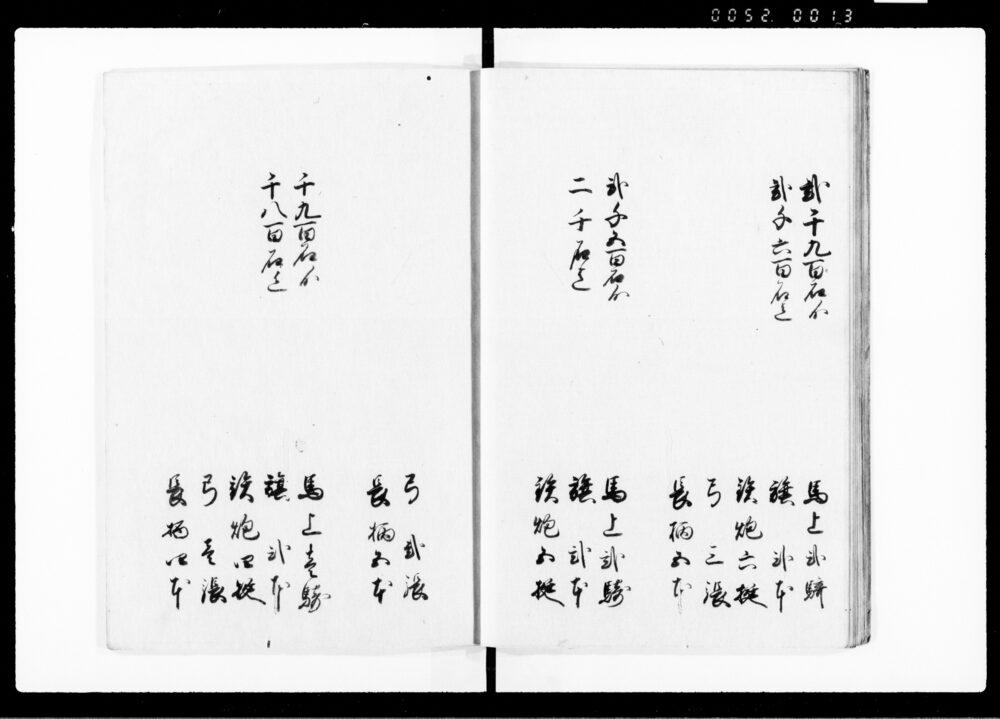 0052. 0013
弐千九百石ゟ
弐千六百石迄
馬上弐騎
旗弐本
鉄炮六挺
弓三張
長柄五本
弐千五百石ゟ
二千石迄
馬上弐騎
旗弐本
鉄炮五挺
弓弐張
長柄五本
千九百石ゟ
千八百石迄
馬上壱騎
旗弐本
鉄炮四挺
弓壱張
長柄四本